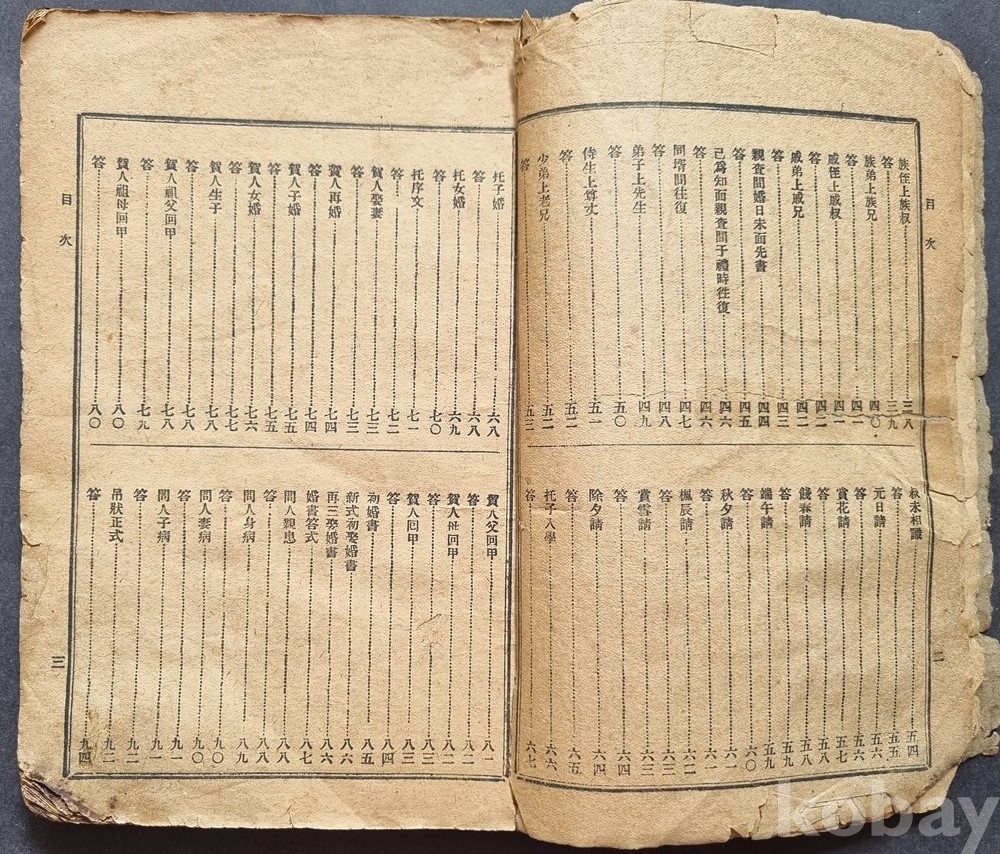 目次
族侄上族叔 三八
答 三九
族弟上族兄 四〇
答 四一
戚侄上戚叔 四一
答 四二
戚弟上戚兄 四二
答 四三
親查間婚日未面先書 四四
答 四五
己爲知面親査間于禮時往復 四六
答 四六
同壻間往復 四七
答 四八
弟子上先生 四九
答 五〇
侍生上尊丈 五一
答 五二
少弟上老兄 五二
答 五三
叙未相識 五四
答 五五
元日請 五六
答 五六
賞花請 五七
答 五八
餞春請 五八
答 五九
端午請 五九
答 六〇
秋夕請 六一
答 六一
楓辰請 六二
答 六三
賞雪請 六三
答 六四
除夕請 六四
答 六五
托子入學 六六
答 六七
二
目次
托子婚 六八
答 六八
托女婚 六九
答 七〇
托序文 七一
答 七二
賀人娶妻 七三
答 七三
賀人再婚 七四
答 七四
賀人子婚 七五
答 七五
賀人女婚 七六
答 七七
賀人生子 七八
答 七八
賀人祖父回甲 七八
答 七九
賀人祖母回甲 八〇
答 八〇
賀人父回甲 八一
答 八二
賀人母回甲 八二
答 八三
賀人回甲 八三
答 八四
初婚書 八五
新式初娶婚書 八六
再三娶婚書 八六
婚書答式 八七
問人親患 八八
答 八八
問人身病 八九
答 九〇
問人妻病 九〇
答 九一
問人子病 九一
答 九二
吊狀正式 九二
答 九四
三
kobay